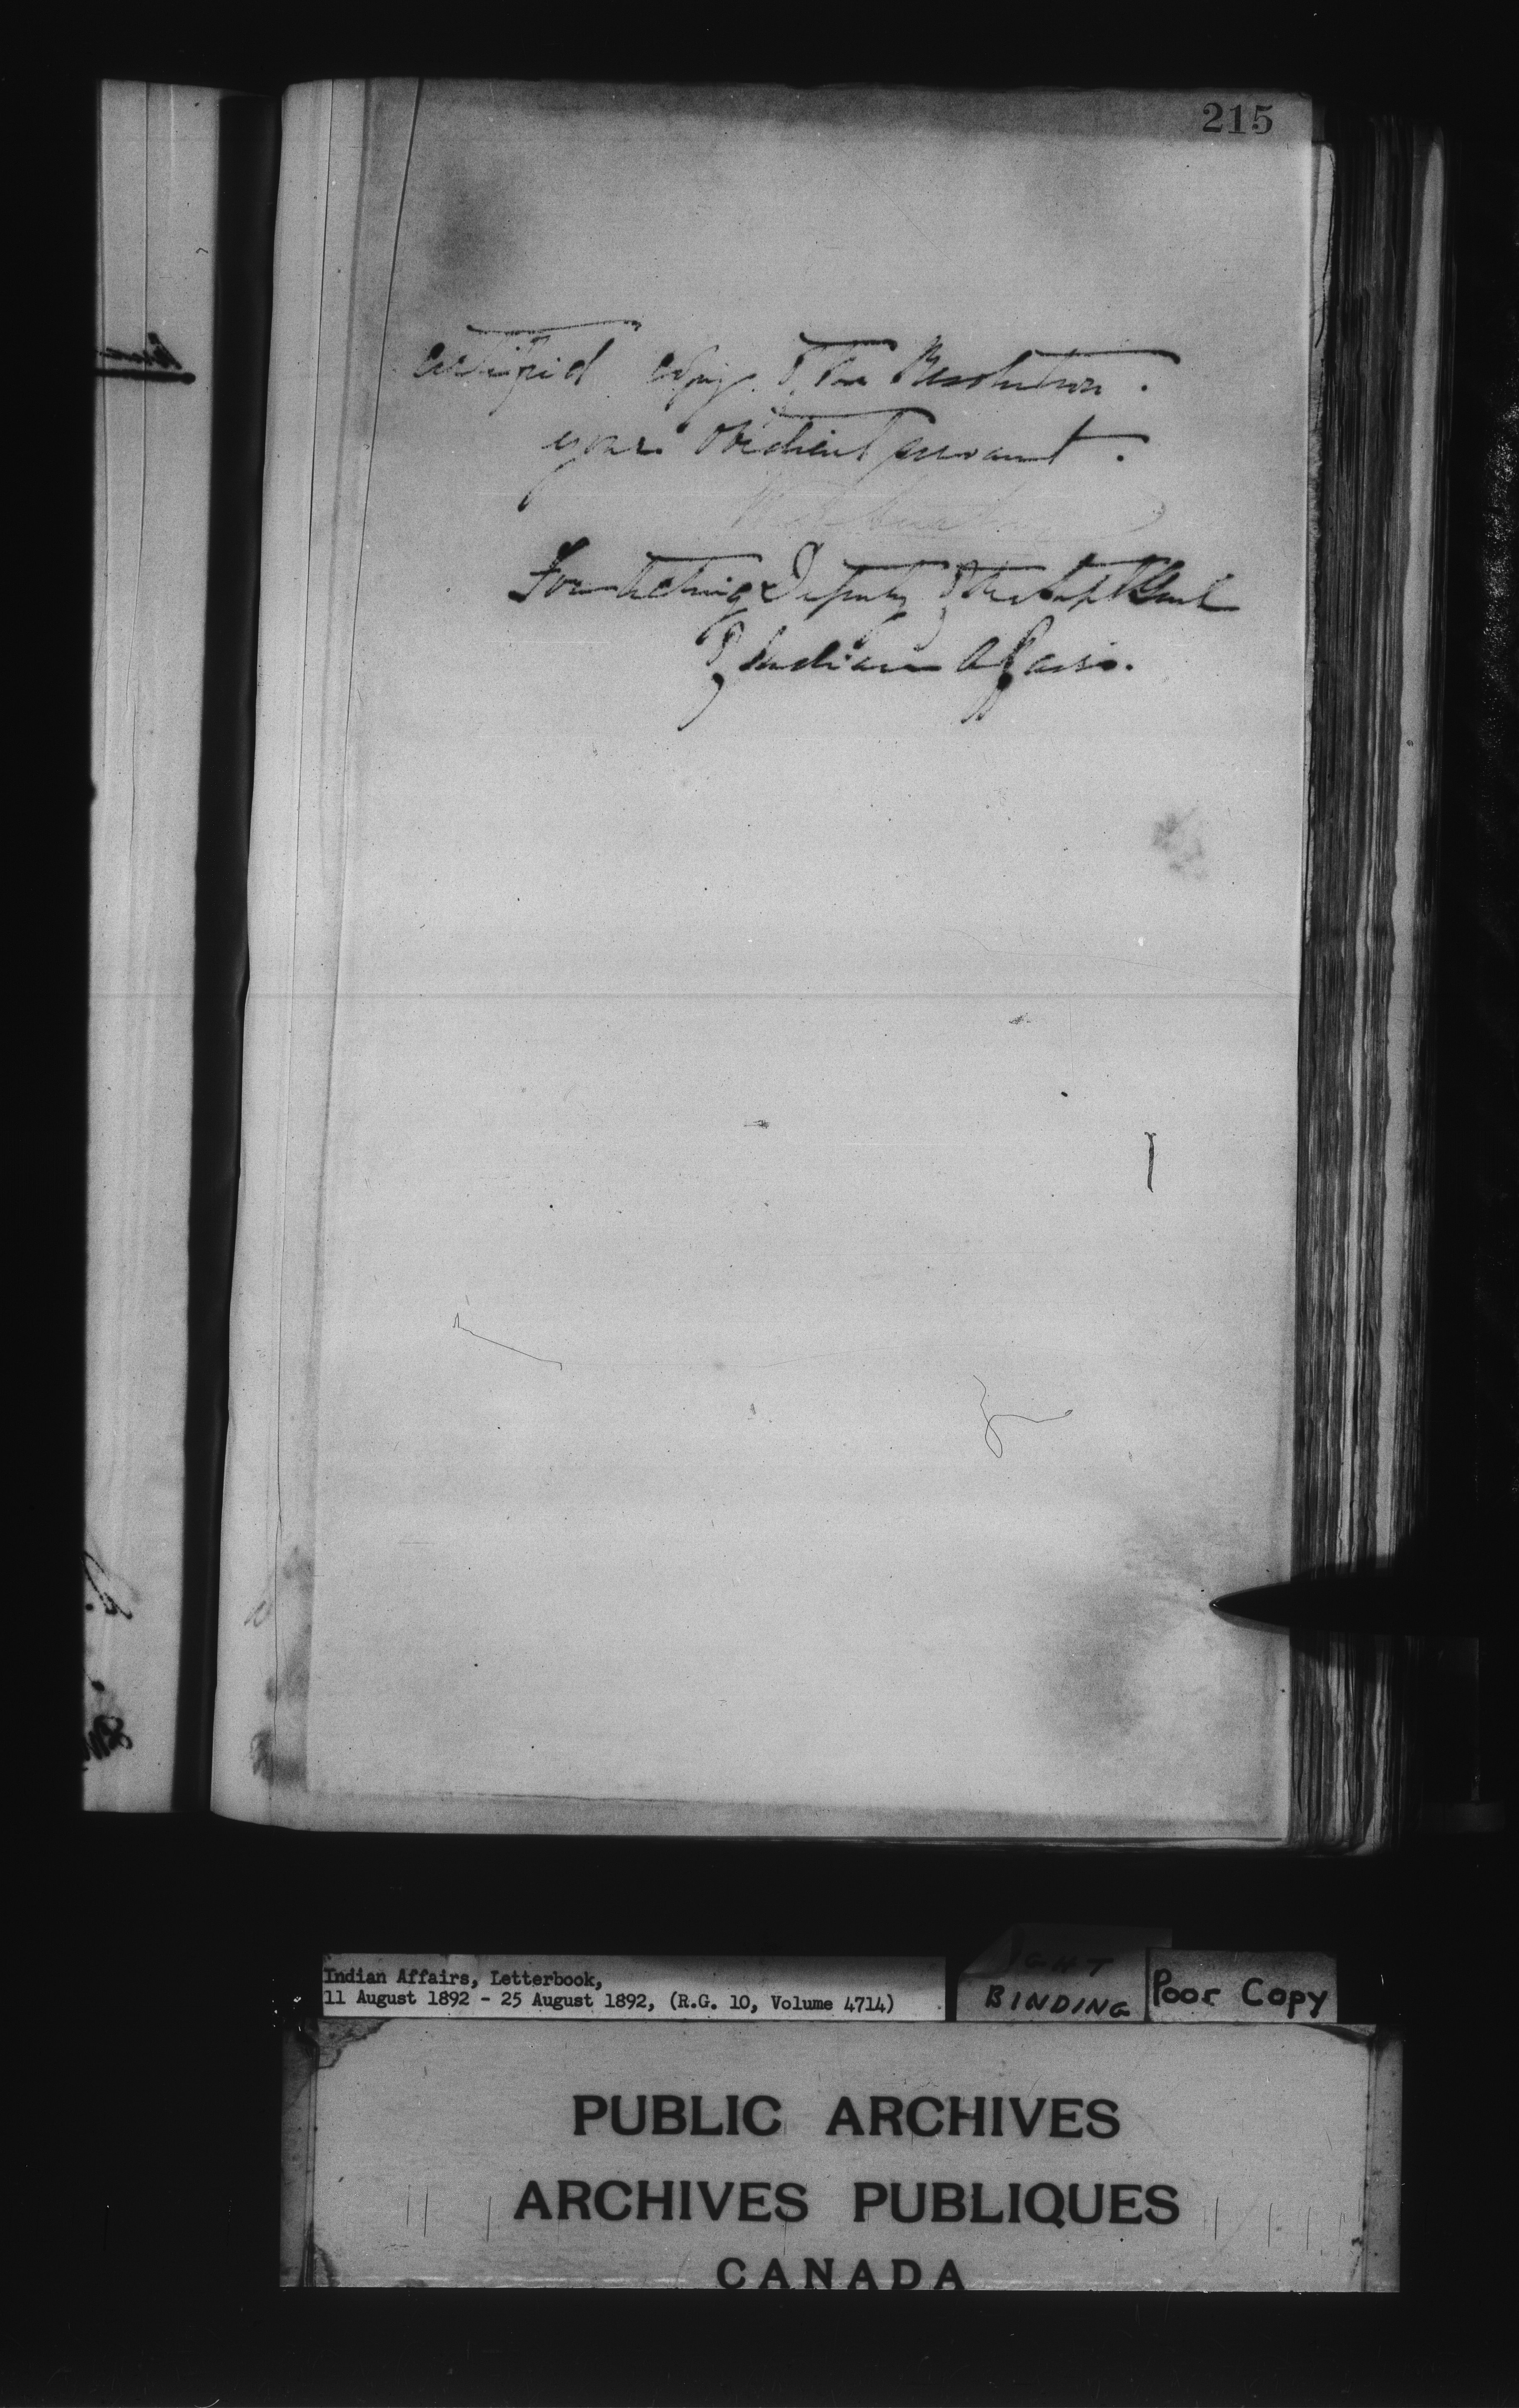 215
certified copy of the Resolution.
your obedient servant.
For Acting Deputy of the Supt Genl
of Indian Affairs.
Indian Affairs, Letterbook,
11 August 1892 - 25 August 1892, (R.G. 10, Volume 4714)
BINDING
Poor Copy
PUBLIC ARCHIVES
ARCHIVES PUBLIQUES
CANADA